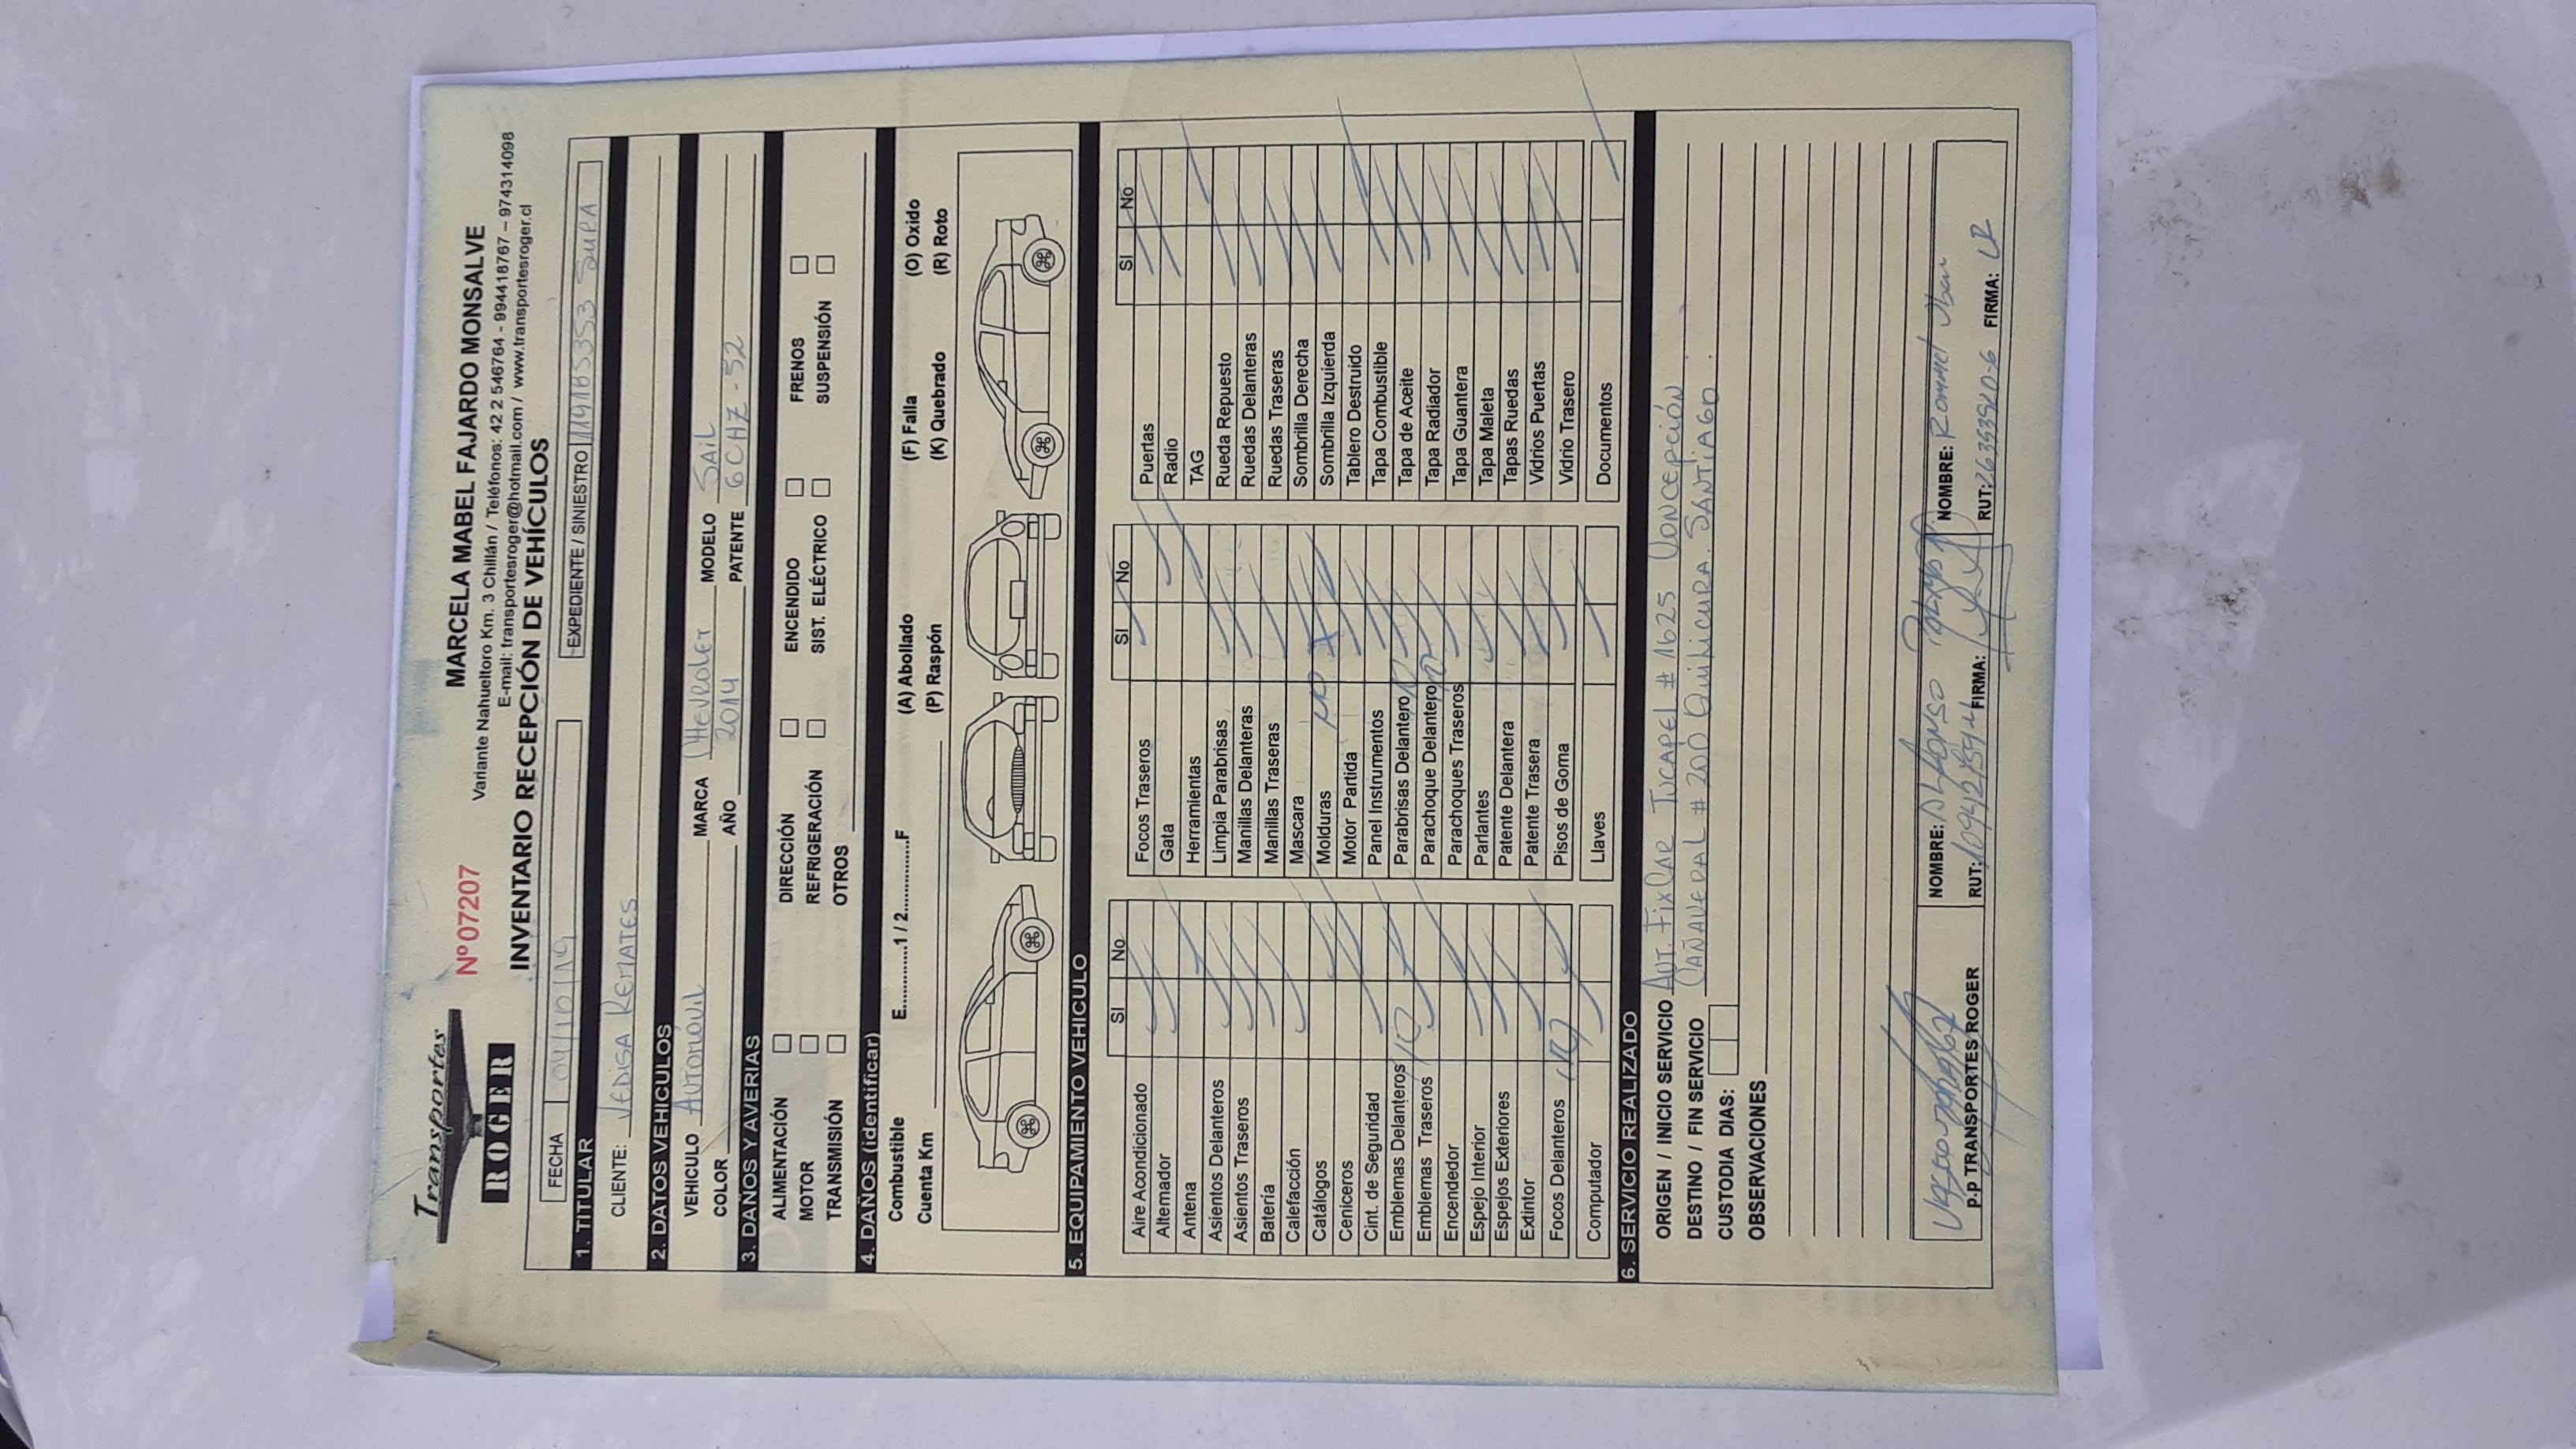 Transportes
ROGER
Nº 07207
MARCELA MABEL FAJARDO MONSALVE
Variante Nahueltoro Km. 3 Chillán / Teléfonos: 42 2 546764 - 994418767 – 974314098
E-mail: transportesroger@hotmail.com / www.transportesroger.cl
INVENTARIO RECEPCIÓN DE VEHÍCULOS
FECHA 04/10/19 EXPEDIENTE / SINIESTRO
1. TITULAR
CLIENTE: VEDISA REMATES
2. DATOS VEHICULOS
VEHICULO AUTOMÓVIL MARCA CHEVROLET MODELO SAIL
COLOR AÑO 2014 PATENTE GCHZ-52
3. DAÑOS Y AVERIAS
ALIMENTACIÓN DIRECCIÓN ENCENDIDO FRENOS
MOTOR REFRIGERACIÓN SIST. ELÉCTRICO SUSPENSIÓN
TRANSMISIÓN OTROS
4. DAÑOS (Identificar)
Combustible E............1 / 2............F (A) Abollado (F) Falla (O) Oxido
Cuenta Km (P) Raspón (K) Quebrado (R) Roto
5. EQUIPAMIENTO VEHICULO
SI No SI No SI No
Aire Acondicionado Focos Traseros Puertas
Alternador Gata Radio
Antena Herramientas TAG
Asientos Delanteros Limpia Parabrisas Rueda Repuesto
Asientos Traseros Manillas Delanteras Ruedas Delanteras
Batería Manillas Traseras Ruedas Traseras
Calefacción Mascara Sombrilla Derecha
Catálogos Molduras Sombrilla Izquierda
Ceniceros Motor Partida Tablero Destruido
Cint. de Seguridad Panel Instrumentos Tapa Combustible
Emblemas Delanteros Parabrisas Delantero Tapa de Aceite
Emblemas Traseros Parachoque Delantero Tapa Radiador
Encendedor Parachoques Traseros Tapa Guantera
Espejo Interior Parlantes Tapa Maleta
Espejos Exteriores Patente Delantera Tapas Ruedas
Extintor Patente Trasera Vidrios Puertas
Focos Delanteros Pisos de Goma Vidrio Trasero
Computador Llaves Documentos
6. SERVICIO REALIZADO
ORIGEN / INICIO SERVICIO AUT. FIXCAR TUCAPEL # 1625 CONCEPCIÓN
DESTINO / FIN SERVICIO CAÑAVERAL # 200 QUILICURA. SANTIAGO.
CUSTODIA DIAS:
OBSERVACIONES
NOMBRE: Alfonso NOMBRE: Rommel
p.p TRANSPORTES ROGER RUT: FIRMA: RUT: FIRMA: